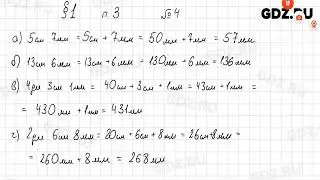 GDZ.RU
§1 п.3 №4
а) 5см 7мм = 5см + 7мм = 50мм + 7мм = 57мм
б) 13см 6мм = 13см + 6мм = 130мм + 6мм = 136мм
в) 4дм 3см 1мм = 40см + 3см + 1мм = 43см + 1мм =
= 430мм + 1мм = 431мм
г) 2дм 6см 8мм = 20см + 6см + 8мм = 26см + 8мм =
= 260мм + 8мм = 268мм